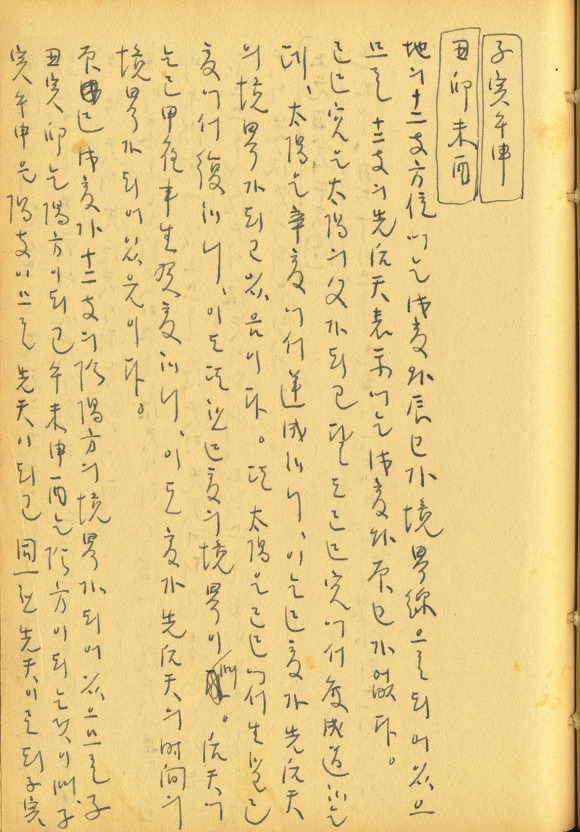 子寅午申
丑卯未酉
地의十二支方位에는戌亥와辰巳가境界線으로되어있으
므로十二支의先后天表示에는戌亥와辰巳가없다。
己巳宮은太陽의父가되고 달도己巳宮에서 成道하는
데、太陽은辛亥에서達成하니、이는巳亥가先后天
의境界가되고있음이다。또太陽은己巳에서生하고
亥에서復하니、이도또한巳亥의境界이며。后天에
는己甲夜半生癸亥하니、이도亥가先后天의时间의
境界가되어있음이다。
辰巳戌亥가十二支의陰陽方의境界가되어있으므로子
丑寅卯는陽方이되고午未申酉는陰方이되는것이며、子
寅午申은陽支이므로先天이되고 同一한先天이로되子寅